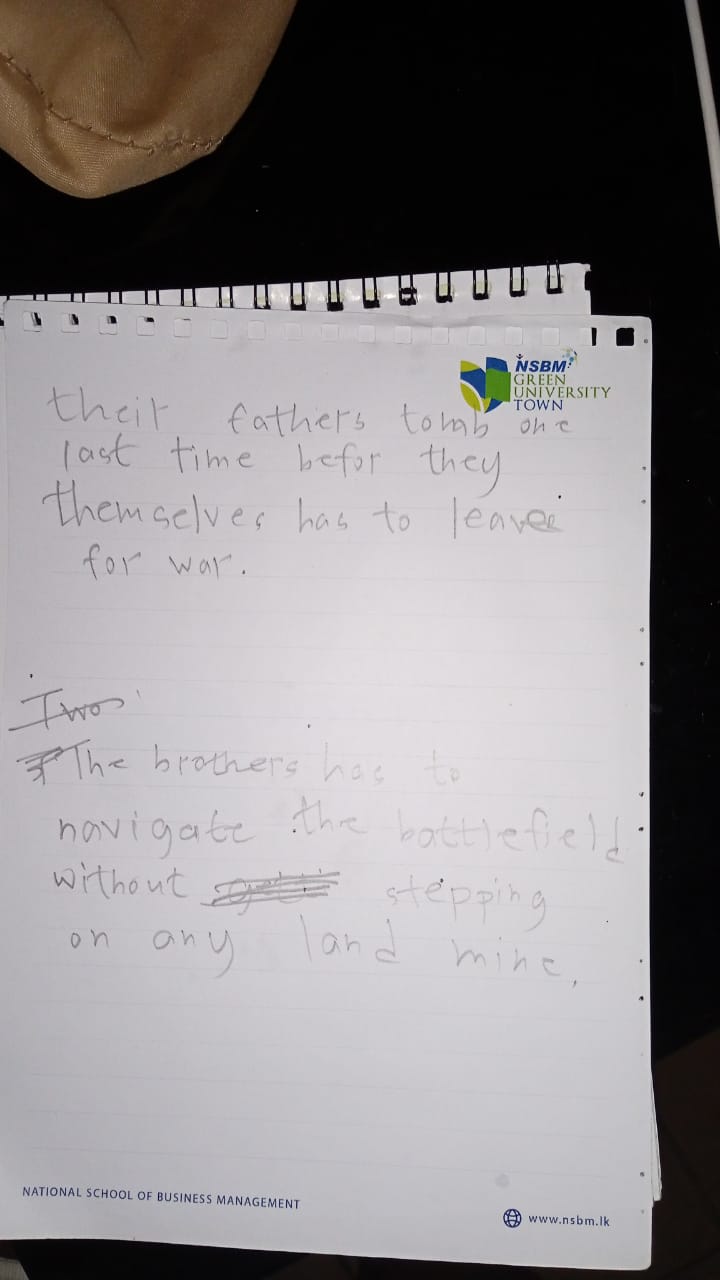 NSBM
GREEN
UNIVERSITY
TOWN
their fathers tomb one
last time befor they
themselves has to leave
for war.
Two
The brothers has to
navigate the battlefield
without stepping
on any land mine.
NATIONAL SCHOOL OF BUSINESS MANAGEMENT
www.nsbm.lk